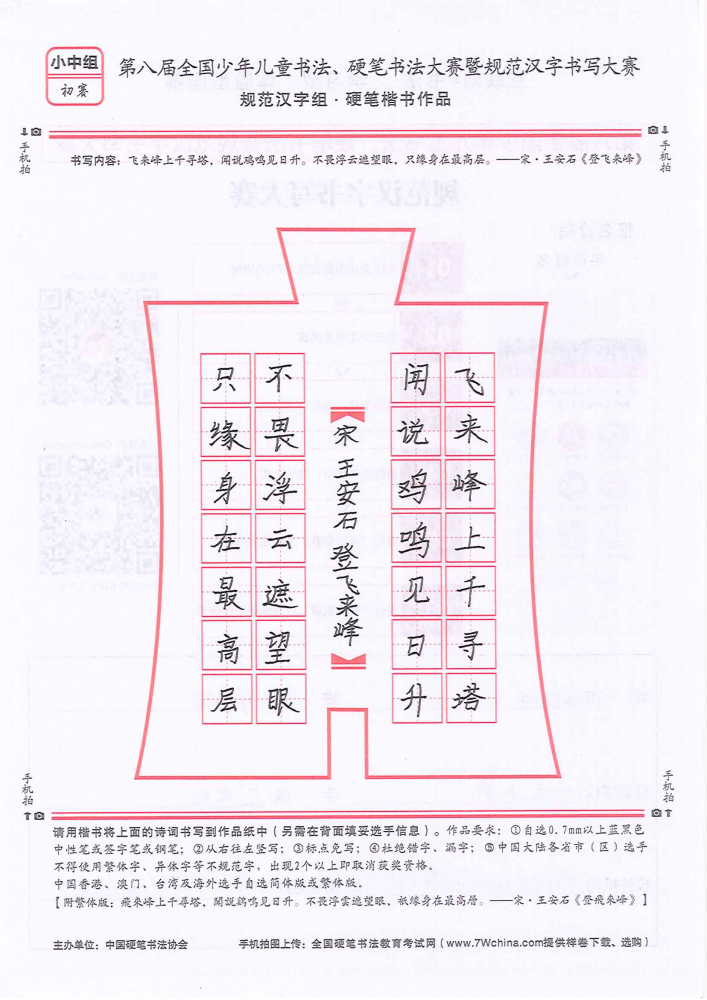 小中组
初赛
第八届全国少年儿童书法、硬笔书法大赛暨规范汉字书写大赛
规范汉字组·硬笔楷书作品
手机拍
手机拍
书写内容：飞来峰上千寻塔，闻说鸡鸣见日升。不畏浮云遮望眼，只缘身在最高层。——宋·王安石《登飞来峰》
飞来峰上千寻塔
闻说鸡鸣见日升
宋 王安石 登飞来峰
不畏浮云遮望眼
只缘身在最高层
手机拍
手机拍
请用楷书将上面的诗词书写到作品纸中（另需在背面填妥选手信息）。作品要求：①自选0.7mm以上蓝黑色
中性笔或签字笔或钢笔；②从右往左竖写；③标点免写；④杜绝错字、漏字；⑤中国大陆各省市（区）选手
不得使用繁体字、异体字等不规范字，出现2个以上即取消获奖资格。
中国香港、澳门、台湾及海外选手自选简体版或繁体版。
【附繁体版：飛來峰上千尋塔，聞説鷄鳴見日升。不畏浮雲遮望眼，祇緣身在最高層。——宋·王安石《登飛來峰》】
主办单位：中国硬笔书法协会
手机拍图上传：全国硬笔书法教育考试网（www.7Wchina.com提供样卷下载、选购）